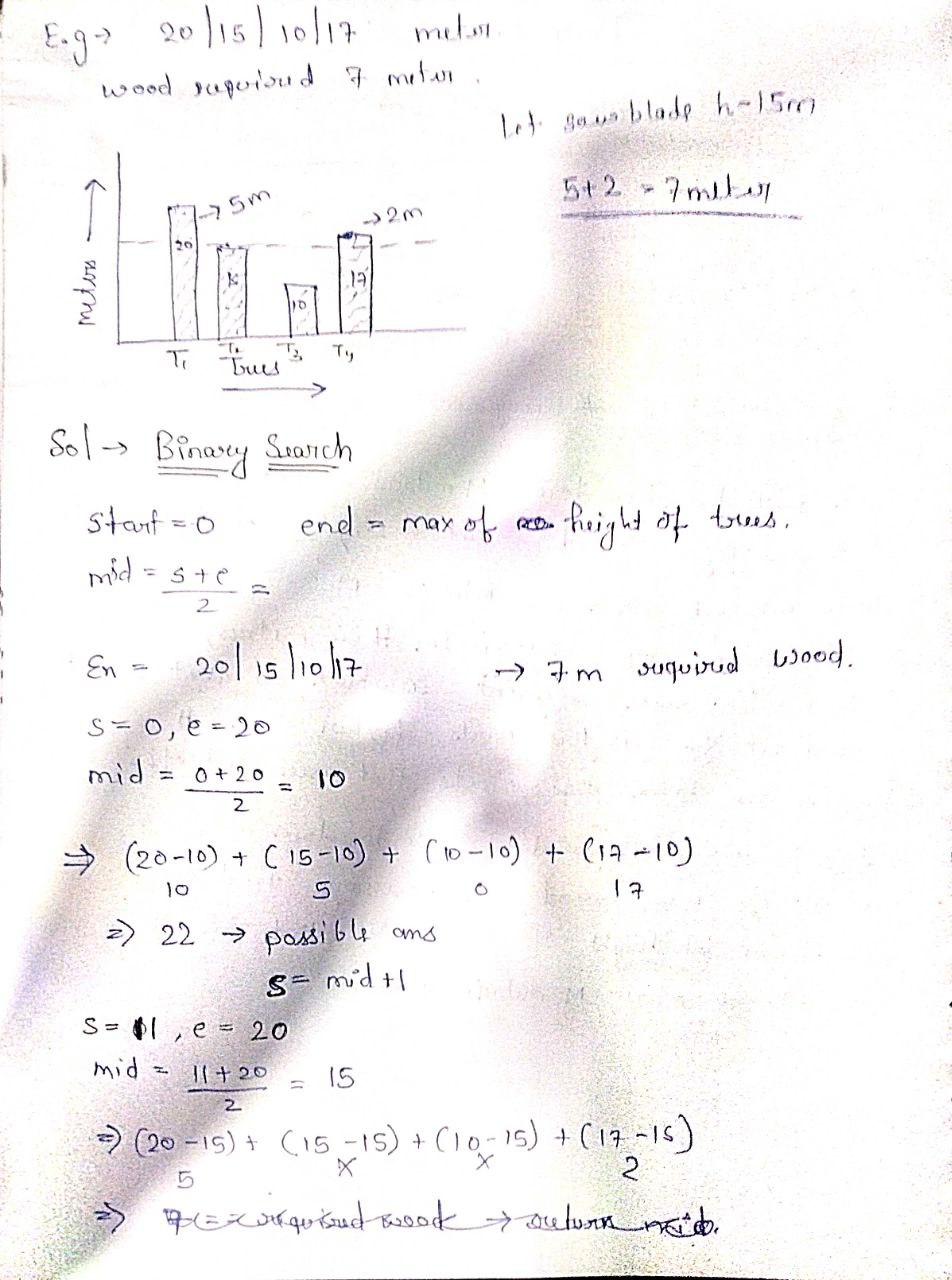 E.g → 20 | 15 | 10 | 17 meter
wood required 7 meter.
Let saw blade h-15m
5+2 = 7 meter
→ 5m
→ 2m
20
15
10
17
meters →
T1 T2 T3 T4
Trees
Sol → Binary Search
Start = 0 end = max of height of trees.
mid = s+e/2 =
En = 20 | 15 | 10 | 17 → 7m required wood.
S = 0, e = 20
mid = 0+20/2 = 10
⇒ (20-10) + (15-10) + (10-10) + (17-10)
10 5 0 17
⇒ 22 → possible ans
S = mid+1
S = 11, e = 20
mid = 11+20/2 = 15
⇒ (20-15) + (15-15) + (10-15) + (17-15)
5 x x 2
⇒ 7 == required wood → return mid.